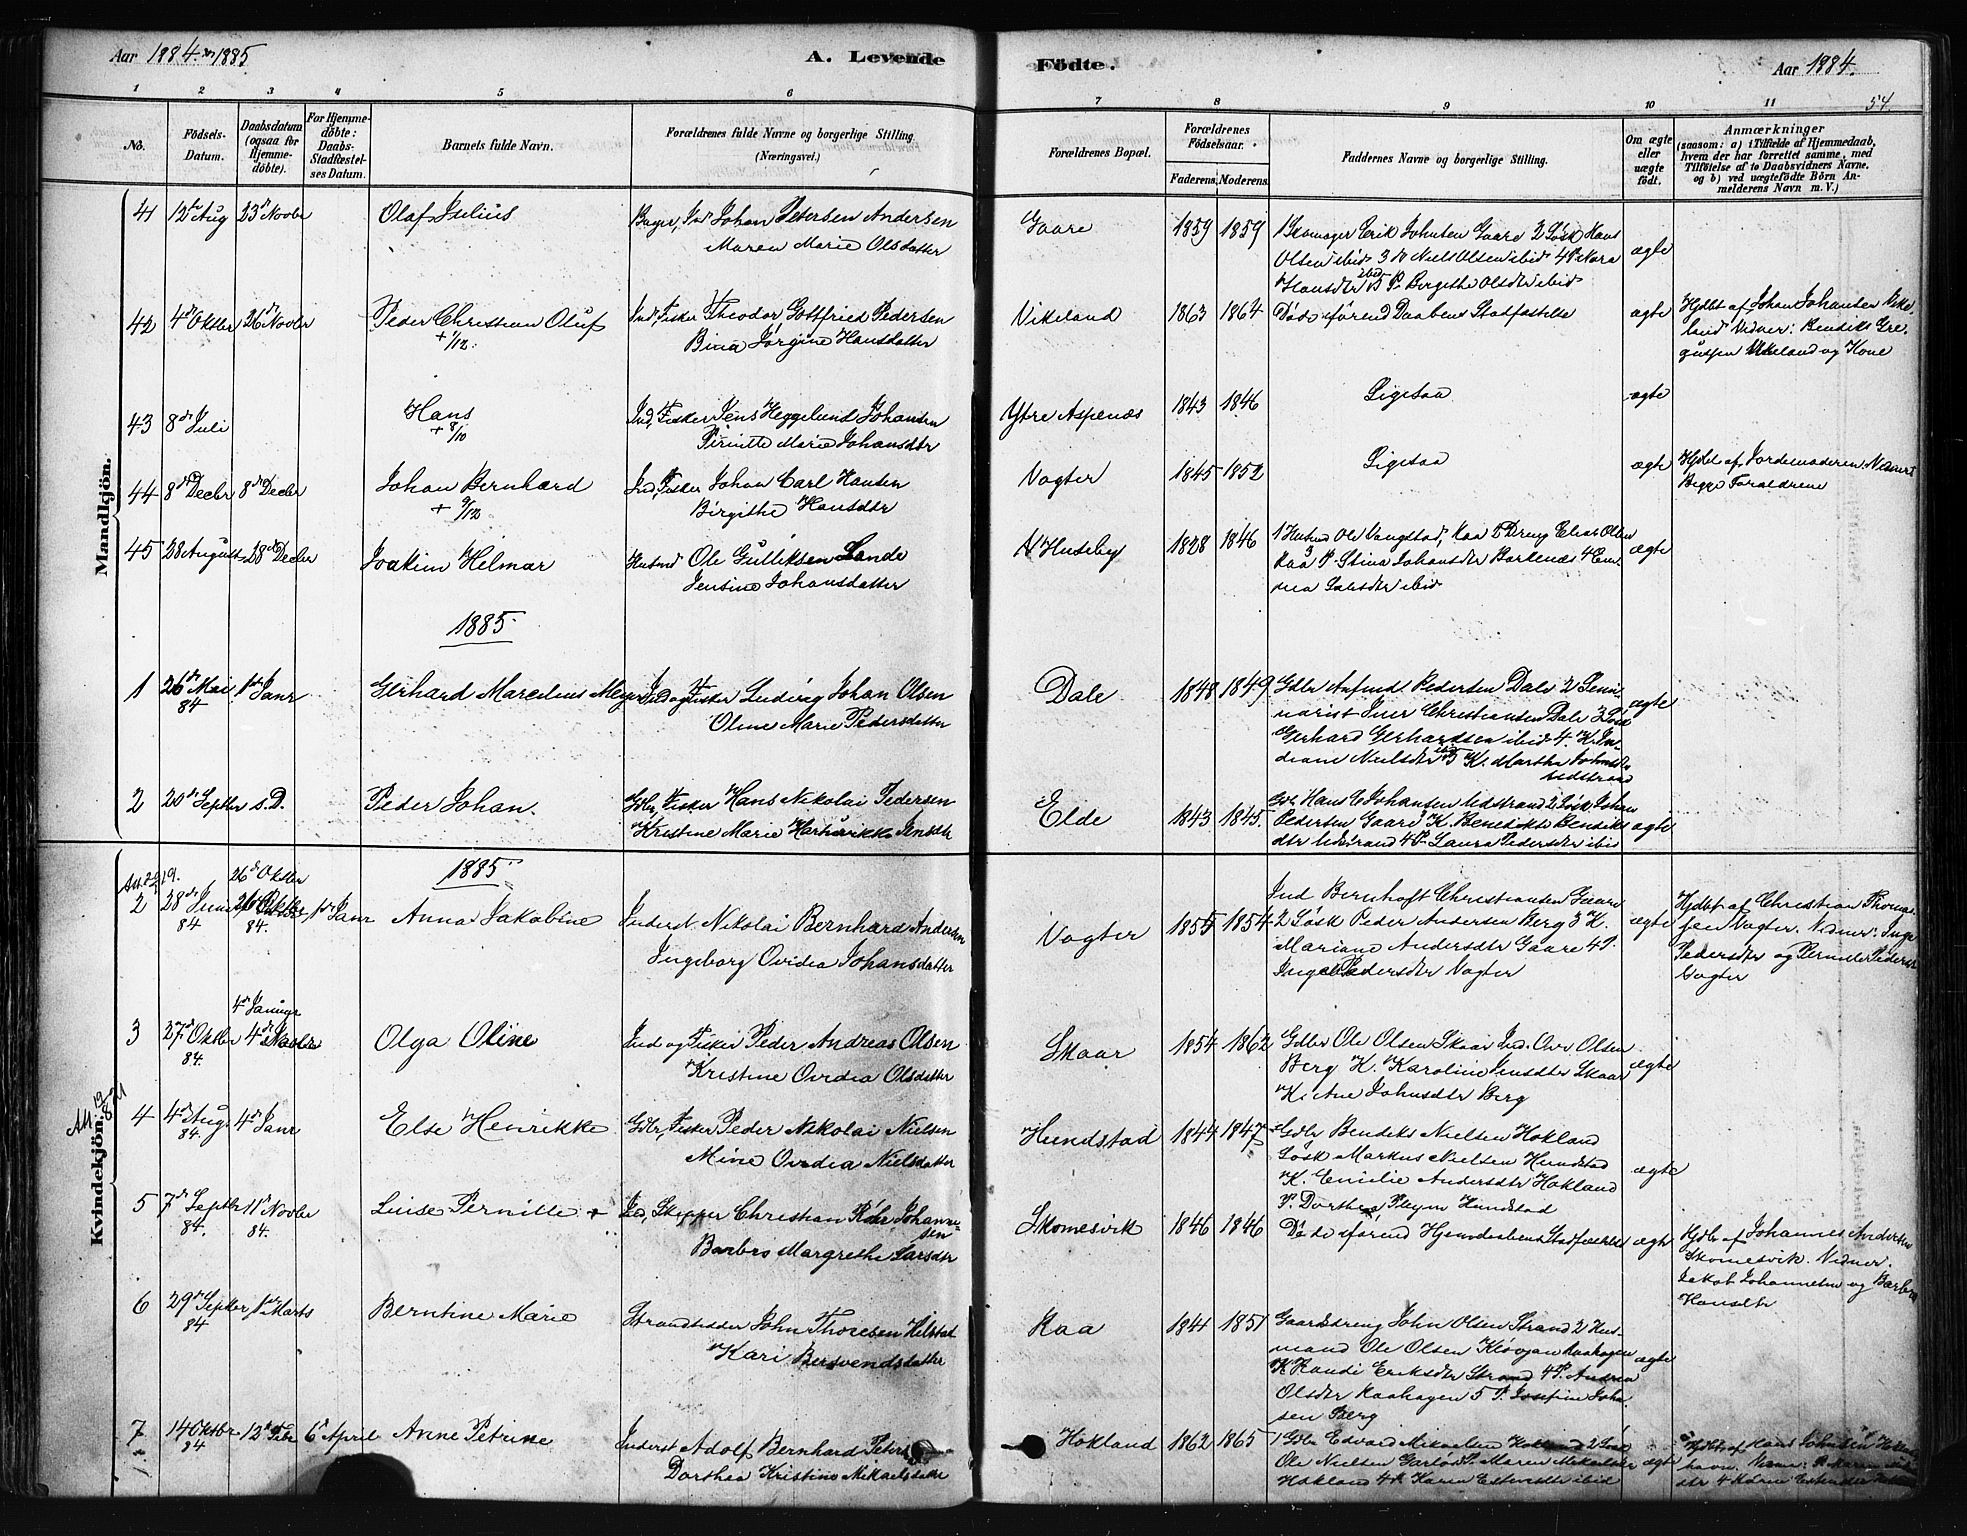 Aar 1884. 1885
A. Levende
Födte.
Aar 1884.
54
1 2 3 4 5 6 7 8 9 10 11
No.
Födsels-
Datum.
Daabsdatum
(ogsaa for
Hjemme-
döbte).
For Hjemme-
döbte:
Daabs-
Stadfæstel-
ses Datum.
Barnets fulde Navn.
Forældrenes fulde Navne og borgerlige Stilling.
(Næringsvei.)
Forældrenes Bopæl.
Forældrenes
Födselsaar.
Faderens. Moderens.
Faddernes Navne og borgerlige Stilling.
Om ægte
eller
uægte
födt.
Anmærkninger
(saasom: a) i Tilfælde af Hjemmedaab,
hvem der har forrettet samme, med
Tilföielse af to Daabsvidners Navne,
og b) ved uægtefödte Börn An-
melderens Navn m. V.)
Mandkjön.
41 12te Aug 23d Novbr Olaf Julius
Johan Petersen Andersen
Maren Marie Olsdatter
Gaare 1859 1859
1 Skomager Erik Johnsen Gaare 2 Løsk Hans
Olsen ibid 3 Niels Olsen ibid 4 P. Nora
Hansdtr ibid 5 P. Birgithe Olsdtr ibid
ægte
42 4de Oktbr 26d Novbr Peder Christian Oluf
+ 1/12
Ind, Fisker Theodor Gottfried Pedersen
Bina Jørgine Hansdatter
Vikeland 1863 1864 Døde førend Daabens Stadfæstelse ægte
Hjdbt af Johan Johansen Vike-
land Vidner: Bendiks Gre-
gussen Vikeland og Kone
43 8de Juli Hans
+ 8/10
Ind, Fisker Jens Heggelund Johansen
Pernille Marie Johansdtr
Ytre Aspenæs 1843 1846 Ligesaa ægte
44 8de Decbr 8de Decbr Johan Bernhard
+ 9/12
Ind, Fisker Johan Carl Hansen
Birgithe Hansdtr
Vogter 1845 1852 Ligesaa ægte
Hjdbt af Jordemoderen. Vidner
Begge Forældrene
45 28 August 28d Decbr Joakim Helmar
Husmd Ole Gulliksen Lande
Jensine Johansdatter
N Huseby 1828 1846
1 Husmd Ole Vangstad, Kaa 2 Dreng Elias Olsen
Kaa 3 P. Stina Johansdtr
ibid
ægte
1885
1 26de Mai 84 1ste Janr Gerhard Marcelius Meyer
Ind og Fisker Ludvig Johan Olsen
Oline Marie Pedersdatter
Dale 1848 1849
Gdbr Anfind Pedersen Dale 2 Semi-
narist Iver Christiansen Dale 3 Løsk
Gerhard Gerhardsen ibid 4. K. In-
diane Nielsdtr ibid 5 K. Martha Johnsdtr
Udstrand
ægte
2 20de Septbr s. D. Peder Johan.
Gdbr, Fisker Hans Nikolai Pedersen
Kristine Marie Hartvikke Jensdtr
Elde 1843 1845
Gdb Hans E Johansen Udstrand 2 Løsk Johan
Pedersen Gaare K. Benedikte Bendiks
dtr Udstrand 4 P. Laura Pedersdtr ibid
ægte
Kvindekjön.
1885
2 28de Juni 84 26de Oktbr 84. 1ste Janr Anna Jakobine
Inderst. Nikolai Bernhard Andersen
Ingeborg Ovidia Johansdatter
Vogter 1855 1854
Ind Bernhoft Christiansen Gaare
2 Løsk Peder Andersen Berg 3 K.
Mariane Andersdtr Gaare 4 P.
Inger Pedersdtr Vogter
ægte
Hjdbt af Christian Thomas-
sen Vogter. Vidner: Inge
Pedersdtr og Pernille Peders
Vogter
3 27d Oktbr 84. 4de Januar Olga Oline
Ind og Fisker Peder Andreas Olsen
Kristine Ovidia Olsdatter
Skaar 1854 1862
Gdbr Ole Olsen Skaar Ind. Ove Olsen
Berg K. Karoline Jensdtr Skaar
K. Ane Johnsdtr Berg
ægte
4 4de Aug. 84. 4de Janr Else Henrikke
Gdbr, Fisker Peder Nikolai Nielsen
Mine Ovidia Nielsdatter
Hundstad 1844 1847
Gdbr Bendiks Nielsen Hokland
Løsk Markus Nielsen Hundstad
K. Emilie Andersdtr Hokland
P. Dorthea Pleym Hundstad
ægte
5 7de Septbr 84. 11d Novbr 84. Luise Pernille +
Ind, Skipper Christian Johanne-
sen
Barbro Margrethe Larsdtr
Skomesvik 1846 1846 Døde førend Hjemdaabens Stadfæstelse ægte
Hjdbt af Johannes Andersen
Skomesvik. Vidner.
Jakob Johannesen og Barbro
Hansdtr
6 29de Septbr 84 1ste Marts Berntine Marie
Strandsidder John Thoresen Hilstad
Kari Bersvendsdatter
Kaa 1841 1851
Gaardsdreng John Olsen Strand 2 Hus-
mand Ole Olsen Kaahagen
K Randi Eriksdtr Strand 4 P. Andrea
Olsdtr Kaahagen 5 P. Josefine Joha-
sen Berg
ægte
7 14 Oktbr 84 12d Febr 6d April Anne Petrine
Inderst Adolf Bernhard
Dorthea Kristine Mikaelsdatter
Hokland 1862 1865
1 Gdbr Edvard Mikaelsen Hokland 2 Løsk
Ole Nielsen P. Maren Mikaelsdtr
Hokland 4 P. Karen Estensdtr ibid
ægte
Hjdbt af Hans Johnsen